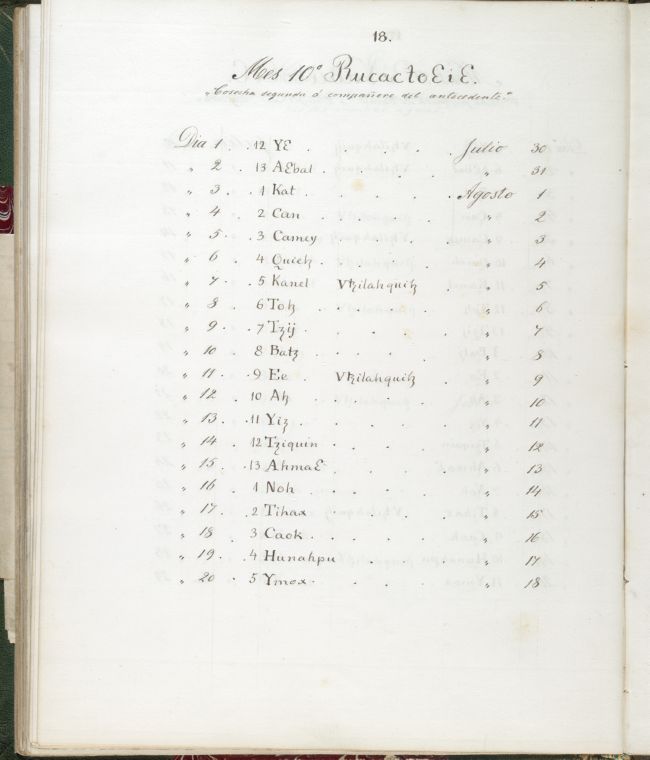 18.
Mes 10º RucactoƐiƐ.
"Cosecha segunda ó compañero del antecedente."
Dia 1 . 12 YƐ . . . . . Julio 30
" 2 . 13 AƐbal . . . . . " 31
" 3 . 1 Kat . . . . . Agosto 1
" 4 . 2 Can . . . . " 2
" 5 . 3 Camey . . . " 3
" 6 . 4 Quieꜩ . . . . " 4
" 7 . 5 Kanel Vꜩilahquiꜩ . " 5
" 8 . 6 Toꜩ . . . . " 6
" 9 . . 7 Tzij . . . . . " 7
" 10 8 Batz . . . . . " 8
" 11 . . 9 Ee Vꜩilahquiꜩ . " 9
" 12 10 Aꜩ . . . . " 10
" 13 . . 11 Yiz . . . . . " 11
" 14 . 12 Tziquin . . . . " 12
" 15 . . 13 AhmaƐ . . . . " 13
" 16 . 1 Noh . . . . " 14
" 17 . . 2 Tihax . . . . " 15
" 18 . 3 Caok . . . . . " 16
" 19 . . 4 Hunahpu . . . . " 17
" 20 . 5 Ymox . . . . . " 18